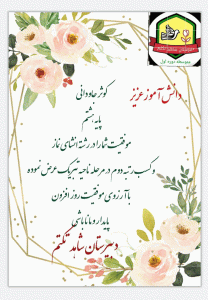 دانش آموز عزیز
کوثر جاودانی
پایه هشتم
موفقیت شما را در رشته انشای نماز
و کسب رتبه دوم در مرحله ناحیه تبریک عرض نموده
با آرزوی موفقیت روز افزون
پایدار و مانا باشی
دبیرستان شاهد تکتم
متوسطه دوره اول